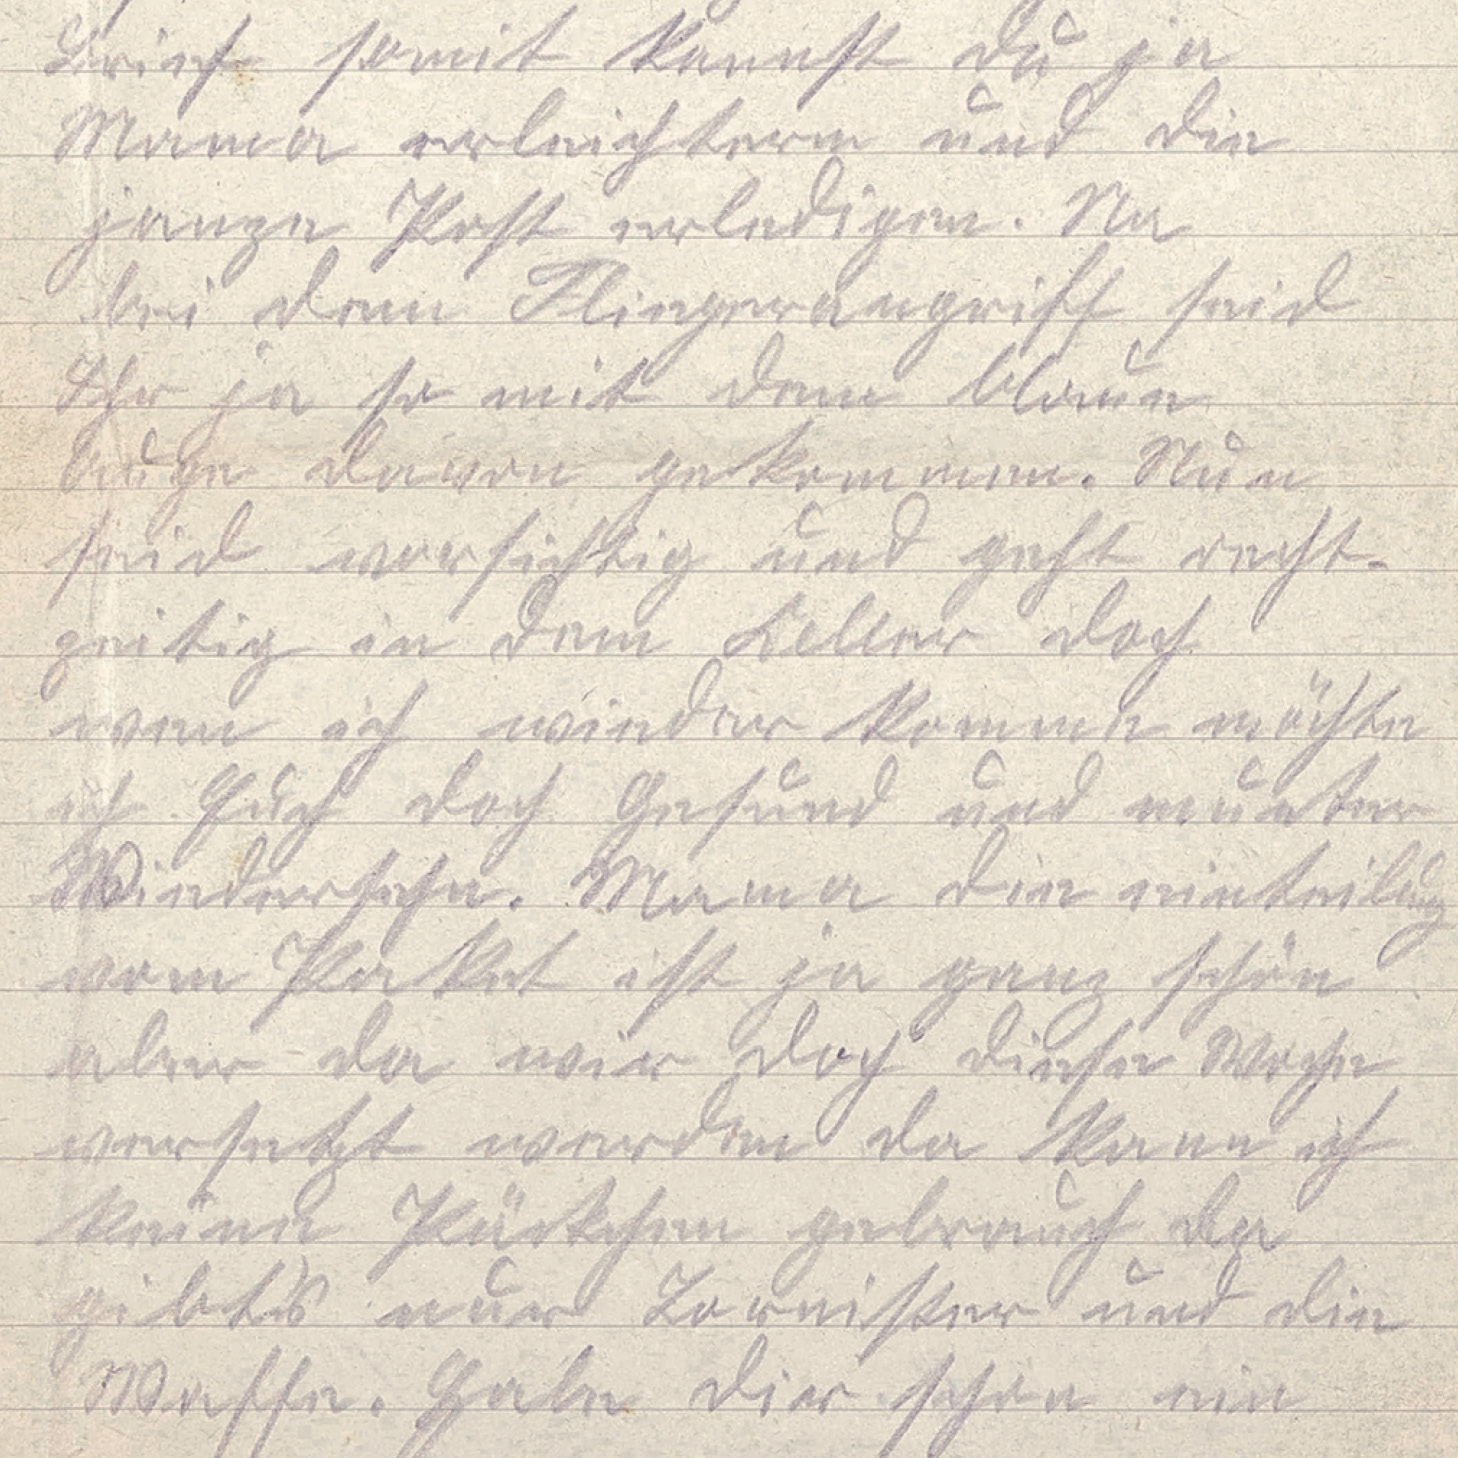 Brief somit kannst du ja
Mama erleichtern und die
ganze Post erledigen. Na
bei dem Fliegerangriff seid
Ihr ja so mit dem blauen
Auge davon gekommen. Nun
seid vorsichtig und geht recht-
zeitig in dem Keller doch
wen ich wieder komme möchte
ich Euch doch Gesund und munter
Wiedersehn. Mama die einteilung
vom Paket ist ja ganz schön
aber da wir doch diese Woche
versetzt werden da kann ich
keine Päckchen gebrauch da
gibts nur Tornister und die
Waffe. Habe dir schon ein